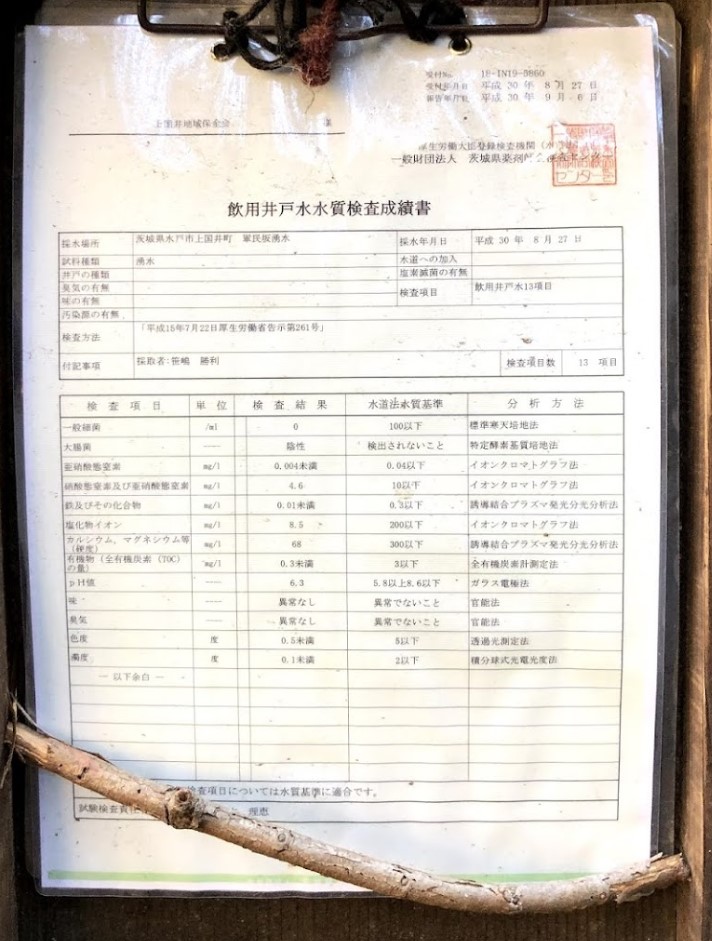 受付No. 18-IN19-5860
受付年月日 平成 30 年 8 月 27 日
報告年月日 平成 30 年 9 月 6 日
上国井地域保全会 様
厚生労働大臣登録検査機関
一般財団法人 茨城県薬剤師会検査センター
飲用井戸水水質検査成績書
採水場所 茨城県水戸市上国井町 軍民坂湧水 採水年月日 平成 30 年 8 月 27 日
試料種類 湧水 水道への加入
井戸の種類 塩素滅菌の有無
臭気の有無 検査項目 飲用井戸水13項目
味の有無
汚染源の有無
検査方法 「平成15年7月22日厚生労働省告示第261号」
付記事項 採取者:笹嶋 勝利 検査項目数 13 項目
検査項目 単位 検査結果 水道法水質基準 分析方法
一般細菌 /ml 0 100以下 標準寒天培地法
大腸菌 ---- 陰性 検出されないこと 特定酵素基質培地法
亜硝酸態窒素 mg/l 0.004未満 0.04以下 イオンクロマトグラフ法
硝酸態窒素及び亜硝酸態窒素 mg/l 4.6 10以下 イオンクロマトグラフ法
鉄及びその化合物 mg/l 0.01未満 0.3以下 誘導結合プラズマ発光分光分析法
塩化物イオン mg/l 8.5 200以下 イオンクロマトグラフ法
カルシウム、マグネシウム等(硬度) mg/l 68 300以下 誘導結合プラズマ発光分光分析法
有機物(全有機炭素(TOC)の量) mg/l 0.3未満 3以下 全有機炭素計測定法
pH値 ---- 6.3 5.8以上8.6以下 ガラス電極法
味 ---- 異常なし 異常でないこと 官能法
臭気 ---- 異常なし 異常でないこと 官能法
色度 度 0.5未満 5以下 透過光測定法
濁度 度 0.1未満 2以下 積分球式光電光度法
― 以下余白 ―
検査項目については水質基準に適合です。
試験検査責任 理恵